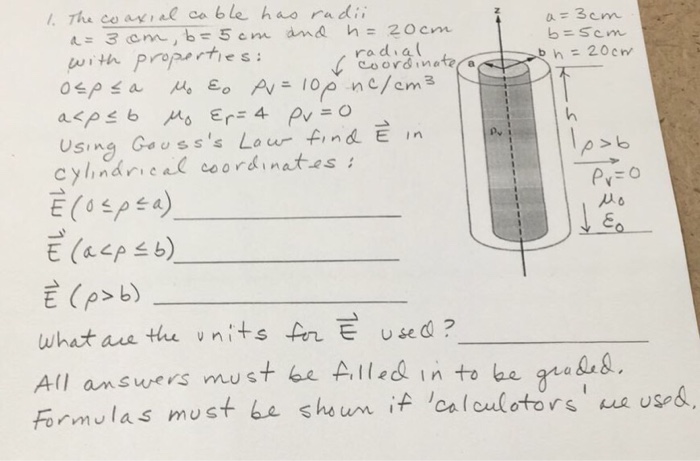 1. The coaxial cable has radii
a = 3 cm, b = 5 cm and h = 20cm
with properties:
radial coordinate
0≤ρ≤a μ₀ ε₀ ρv = 10ρ nc/cm³
a<ρ≤b μ₀ εr = 4 ρv = 0
Using Gauss's Law find E⃗ in
cylindrical coordinates:
E⃗ (0≤ρ≤a)
E⃗ (a<ρ≤b)
E⃗ (ρ>b)
What are the units for E⃗ used?
All answers must be filled in to be graded.
Formulas must be shown if 'calculotors' are used.
z
a = 3cm
b = 5cm
h = 20cm
a
b
h
ρv
ρ>b
ρv=0
μ₀
ε₀